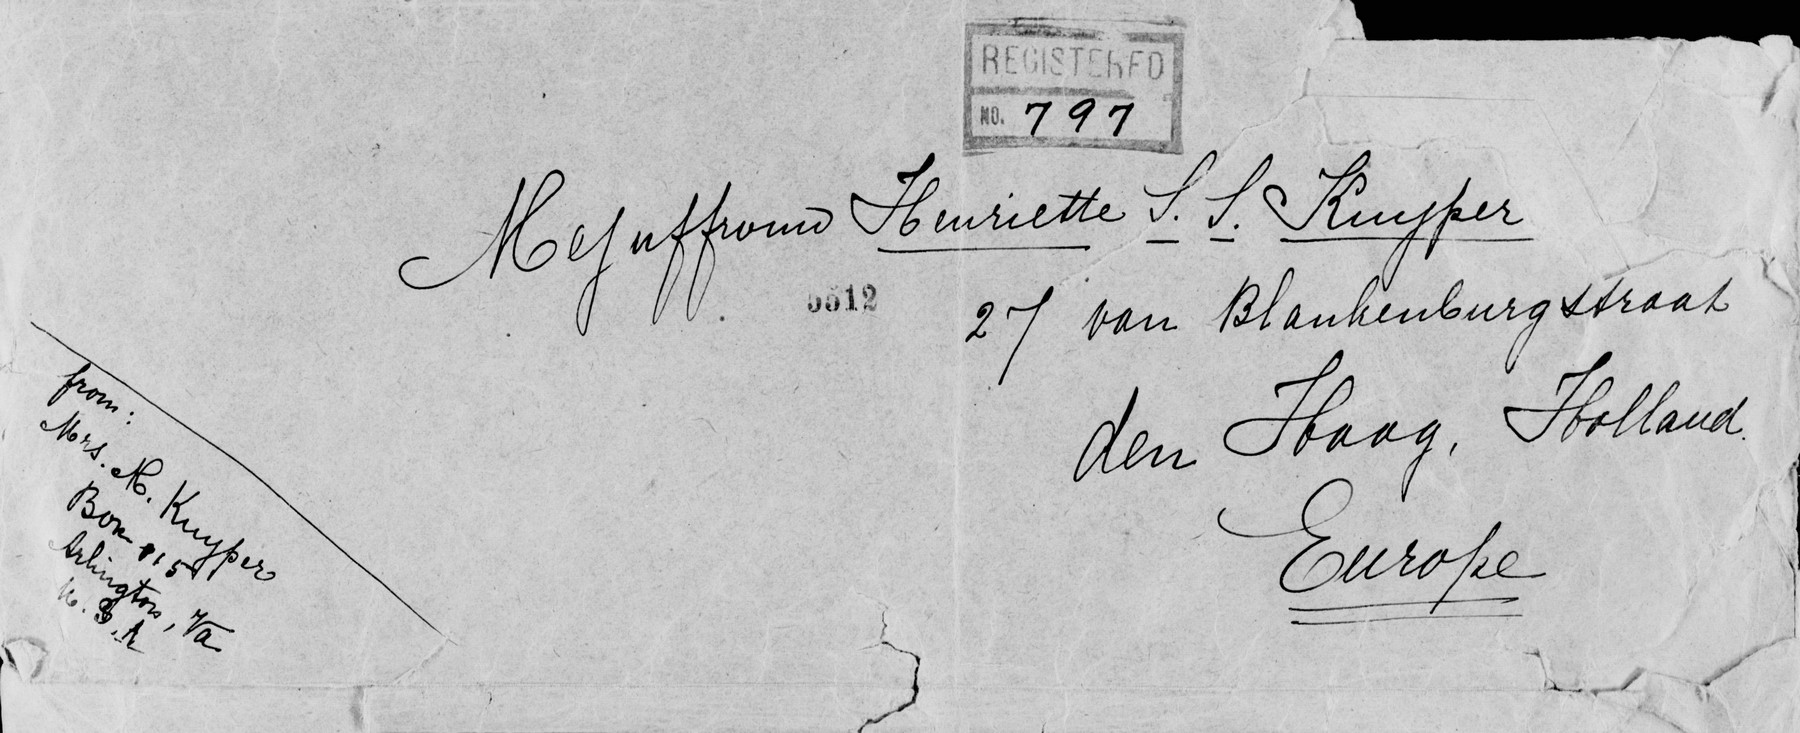 REGISTERED
NO. 797
Mejuffrouw Henriette S. S. Kuyper
5512
27 van Blankenburgstraat
den Haag, Holland.
Europe
from:
Mrs. M. Kuyper
Box 115
Arlington, Va
U. S. A